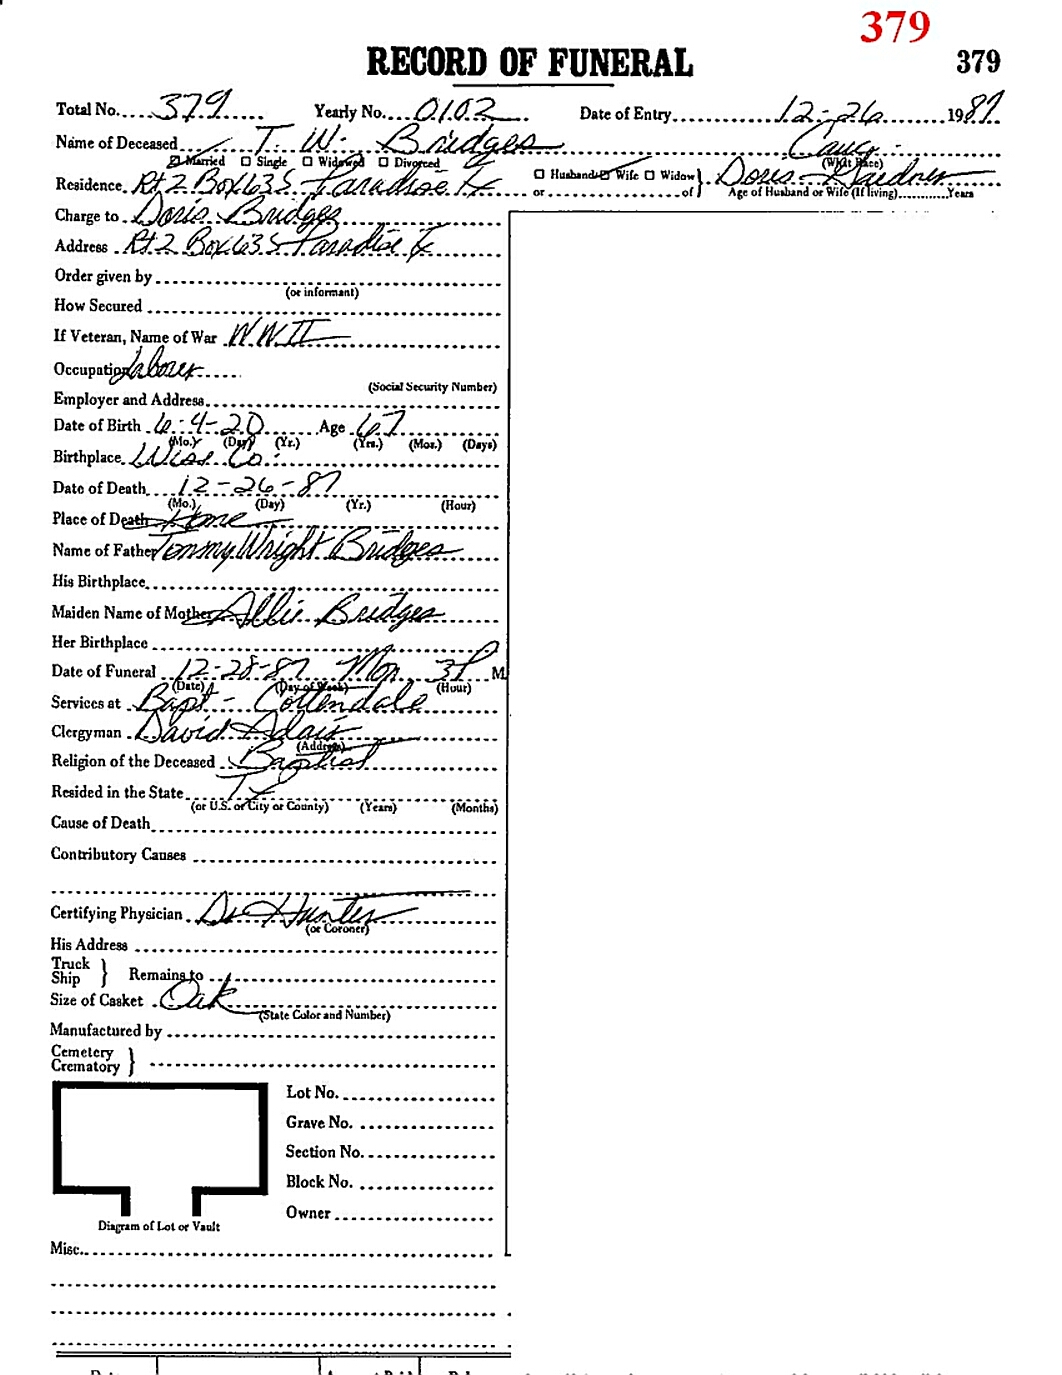 379
RECORD OF FUNERAL 379
Total No. 379 Yearly No. 0102 Date of Entry 12-26 1987
Name of Deceased T. W. Bridges Cauc.
Married Single Widowed Divorced (What Race)
Residence Rt 2 Box 635 Paradise Tx Husband Wife Widow or of Doris Gardner
Age of Husband or Wife (If living) Years
Charge to Doris Bridges
Address Rt 2 Box 635 Paradise Tx
Order given by
(or informant)
How Secured
If Veteran, Name of War WW II
Occupation Laborer
(Social Security Number)
Employer and Address
Date of Birth 6-4-20 Age 67
(Mo.) (Day) (Yr.) (Yrs.) (Mos.) (Days)
Birthplace Wise Co.
Date of Death 12-26-87
(Mo.) (Day) (Yr.) (Hour)
Place of Death Home
Name of Father Tommy Wright Bridges
His Birthplace
Maiden Name of Mother Allie Bridges
Her Birthplace
Date of Funeral 12-28-87 Mon. 3 P M
(Date) (Day of Week) (Hour)
Services at Bapt - Cottondale
Clergyman David Adair
(Address)
Religion of the Deceased Baptist
Resided in the State Tx
(or U.S. or City or County) (Years) (Months)
Cause of Death
Contributory Causes
Certifying Physician Dr Hunter
(or Coroner)
His Address
Truck
Ship } Remains to
Size of Casket Oak
(State Color and Number)
Manufactured by
Cemetery
Crematory }
Lot No.
Grave No.
Section No.
Block No.
Owner
Diagram of Lot or Vault
Misc.